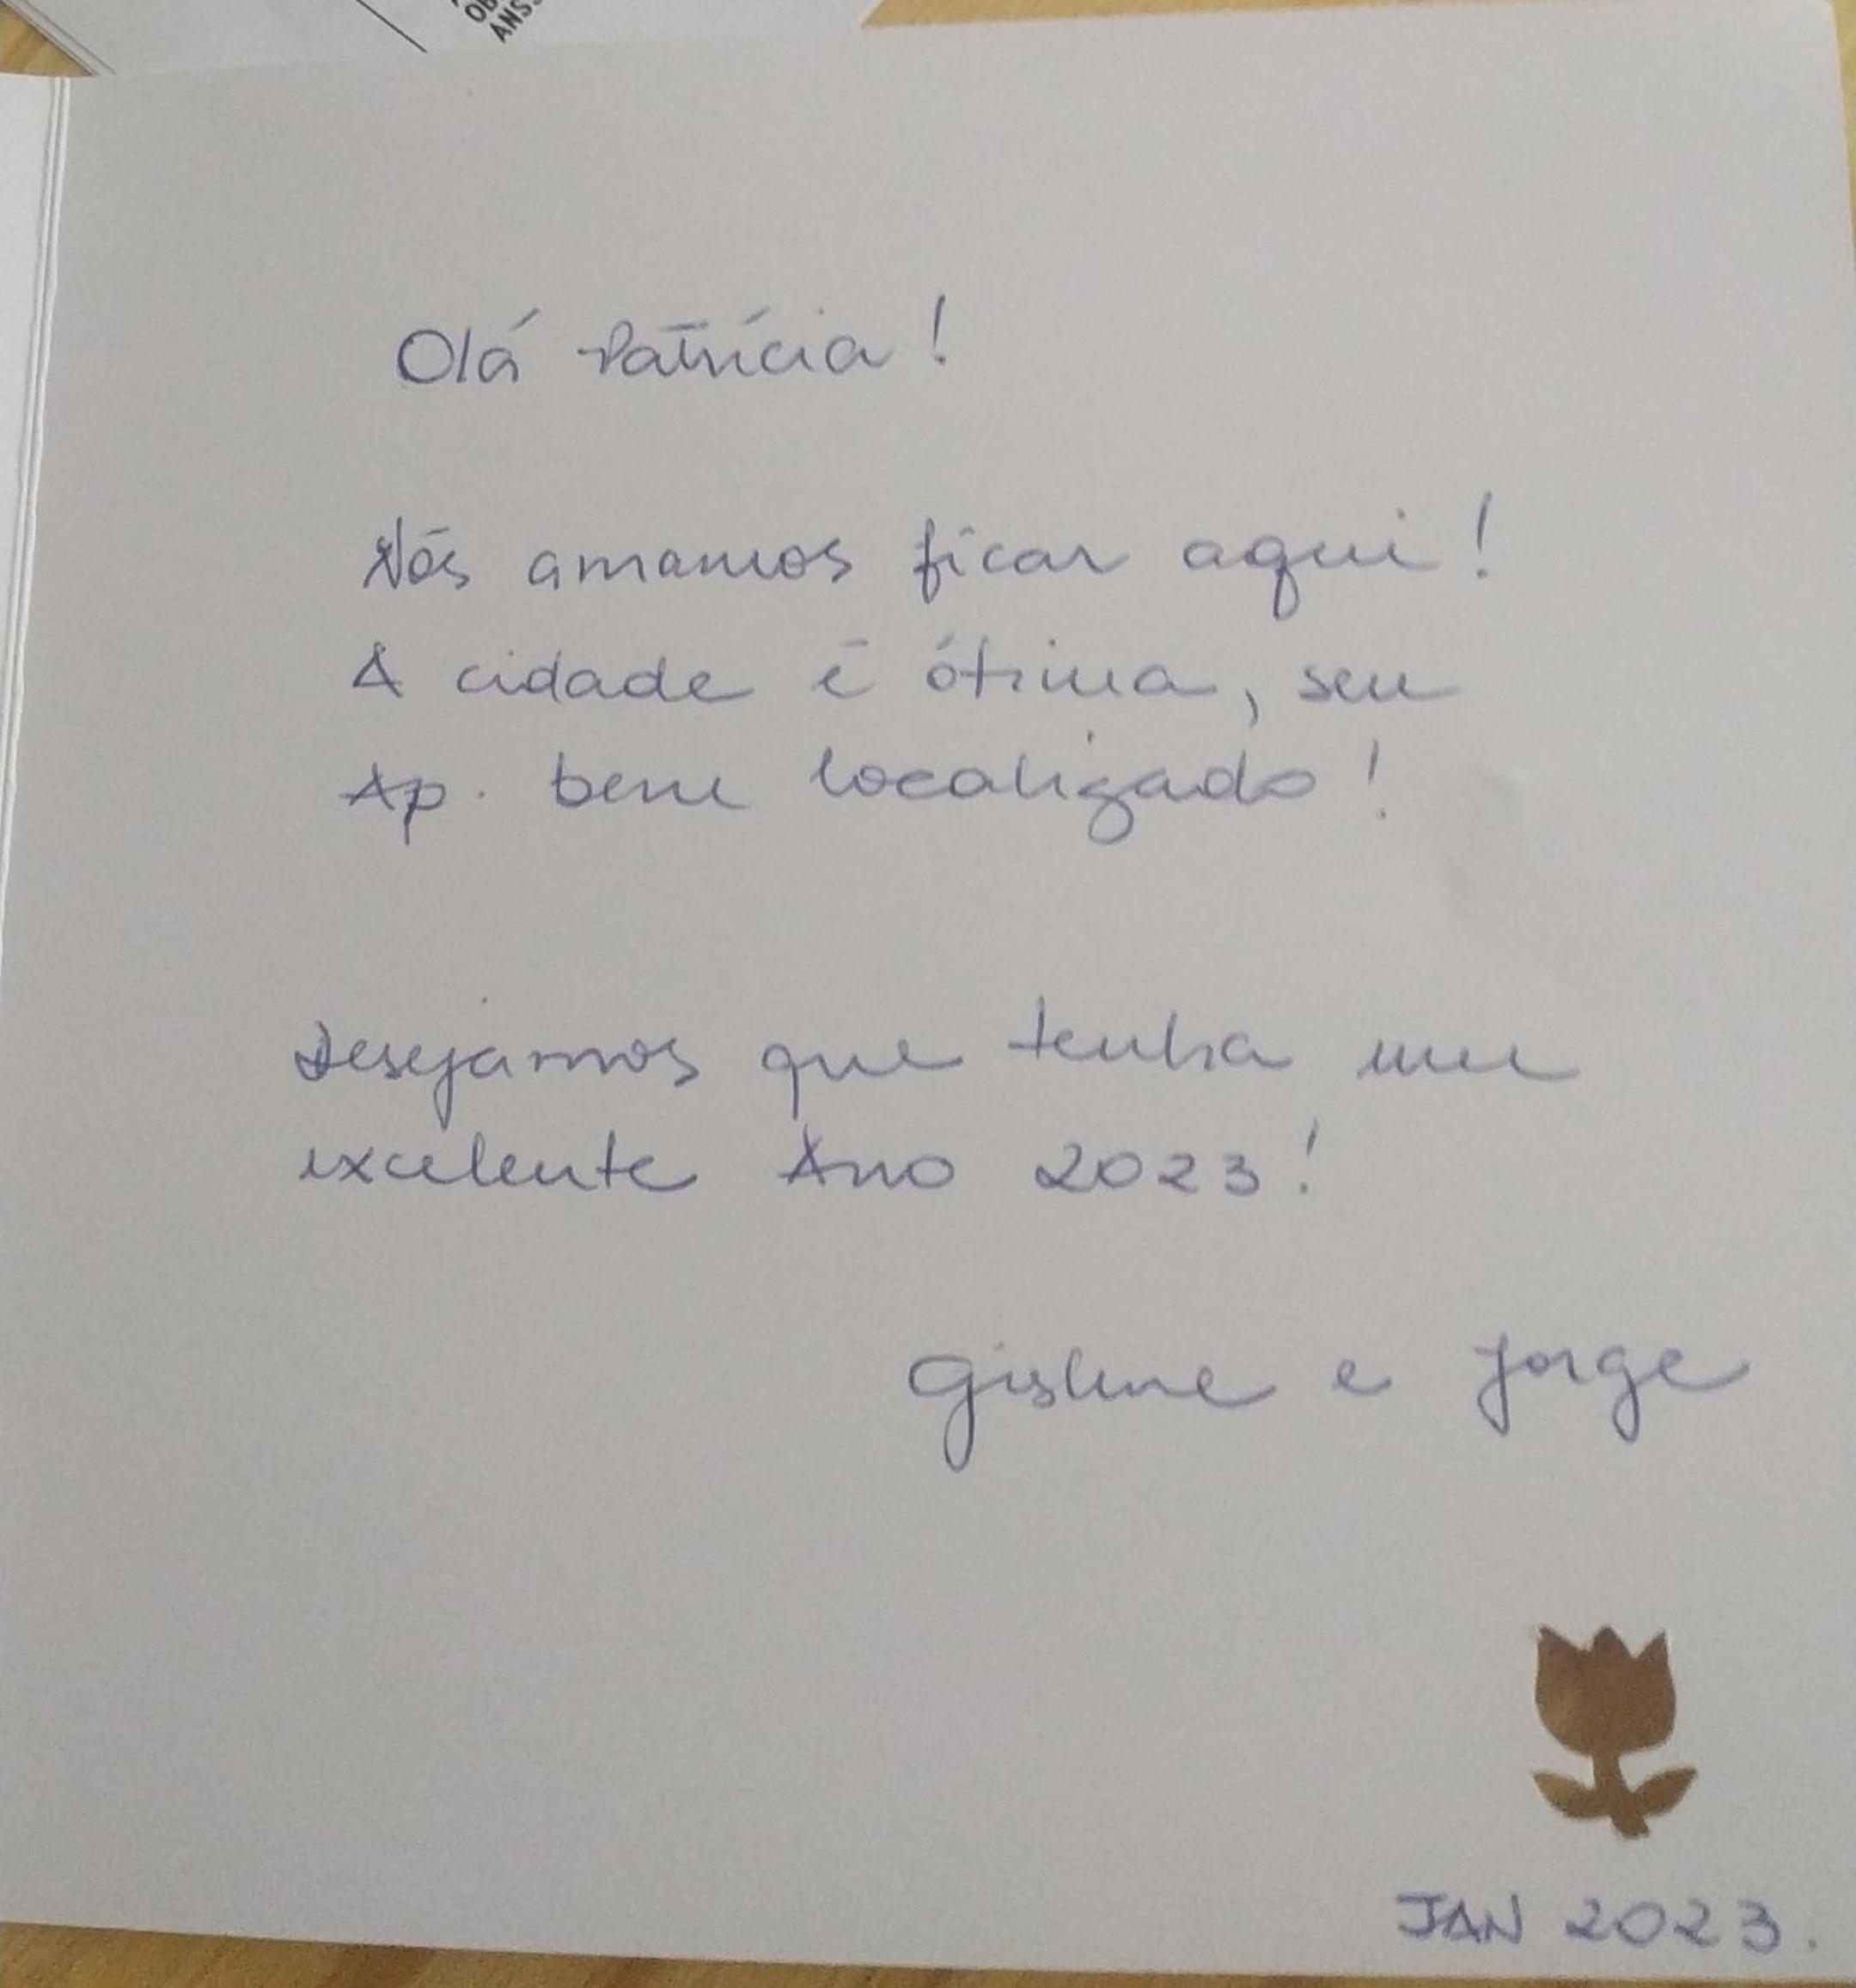 OB
ANS
Olá Patrícia!
Nós amamos ficar aqui!
A cidade é ótima, seu
Ap. bem localizado!
Desejamos que tenha um
excelente Ano 2023!
Gislene e Jorge
JAN 2023.